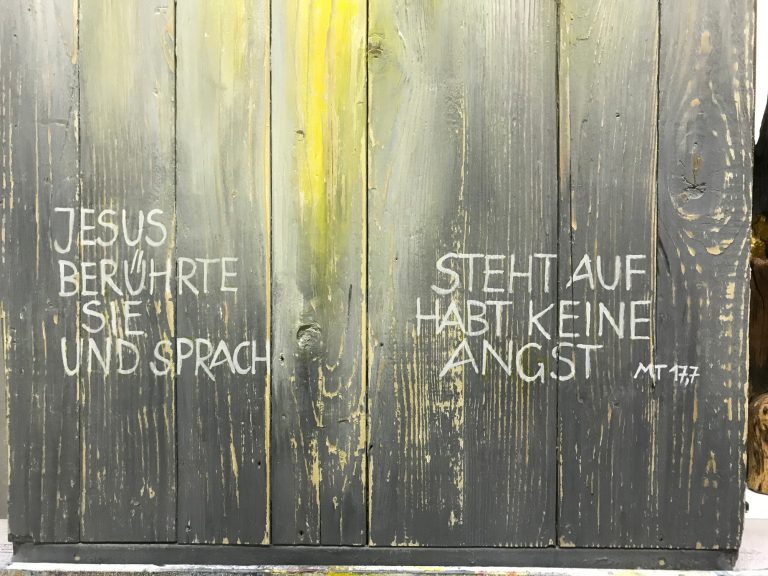 JESUS
BERÜHRTE
SIE
UND SPRACH
STEHT AUF
HABT KEINE
ANGST
MT 17,7